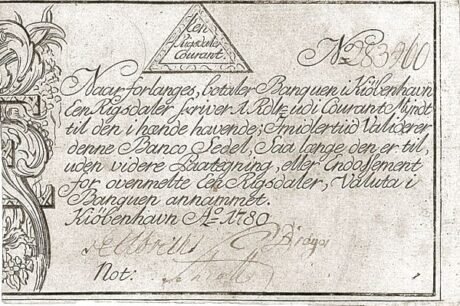 Een
Rigsdaler
Courant.
No 283460
Naar forlanges, betaler Banquen i Kiöbenhavn
Een Rigsdaler skriver 1 Rdlr. udi Courant Myndt
til den i hænde havende; Imidlertiid Validerer
denne Banco Sedel, Saa længe den er til,
uden videre Paategning, eller Endossement
for ovenmelte Een Rigsdaler, Valuta i
Banquen annammet.
Kiöbenhavn Ao. 1780.
Not: